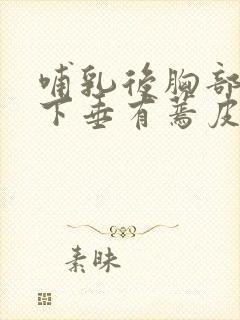 哺乳後胸部
下垂有蔫皮
素昧